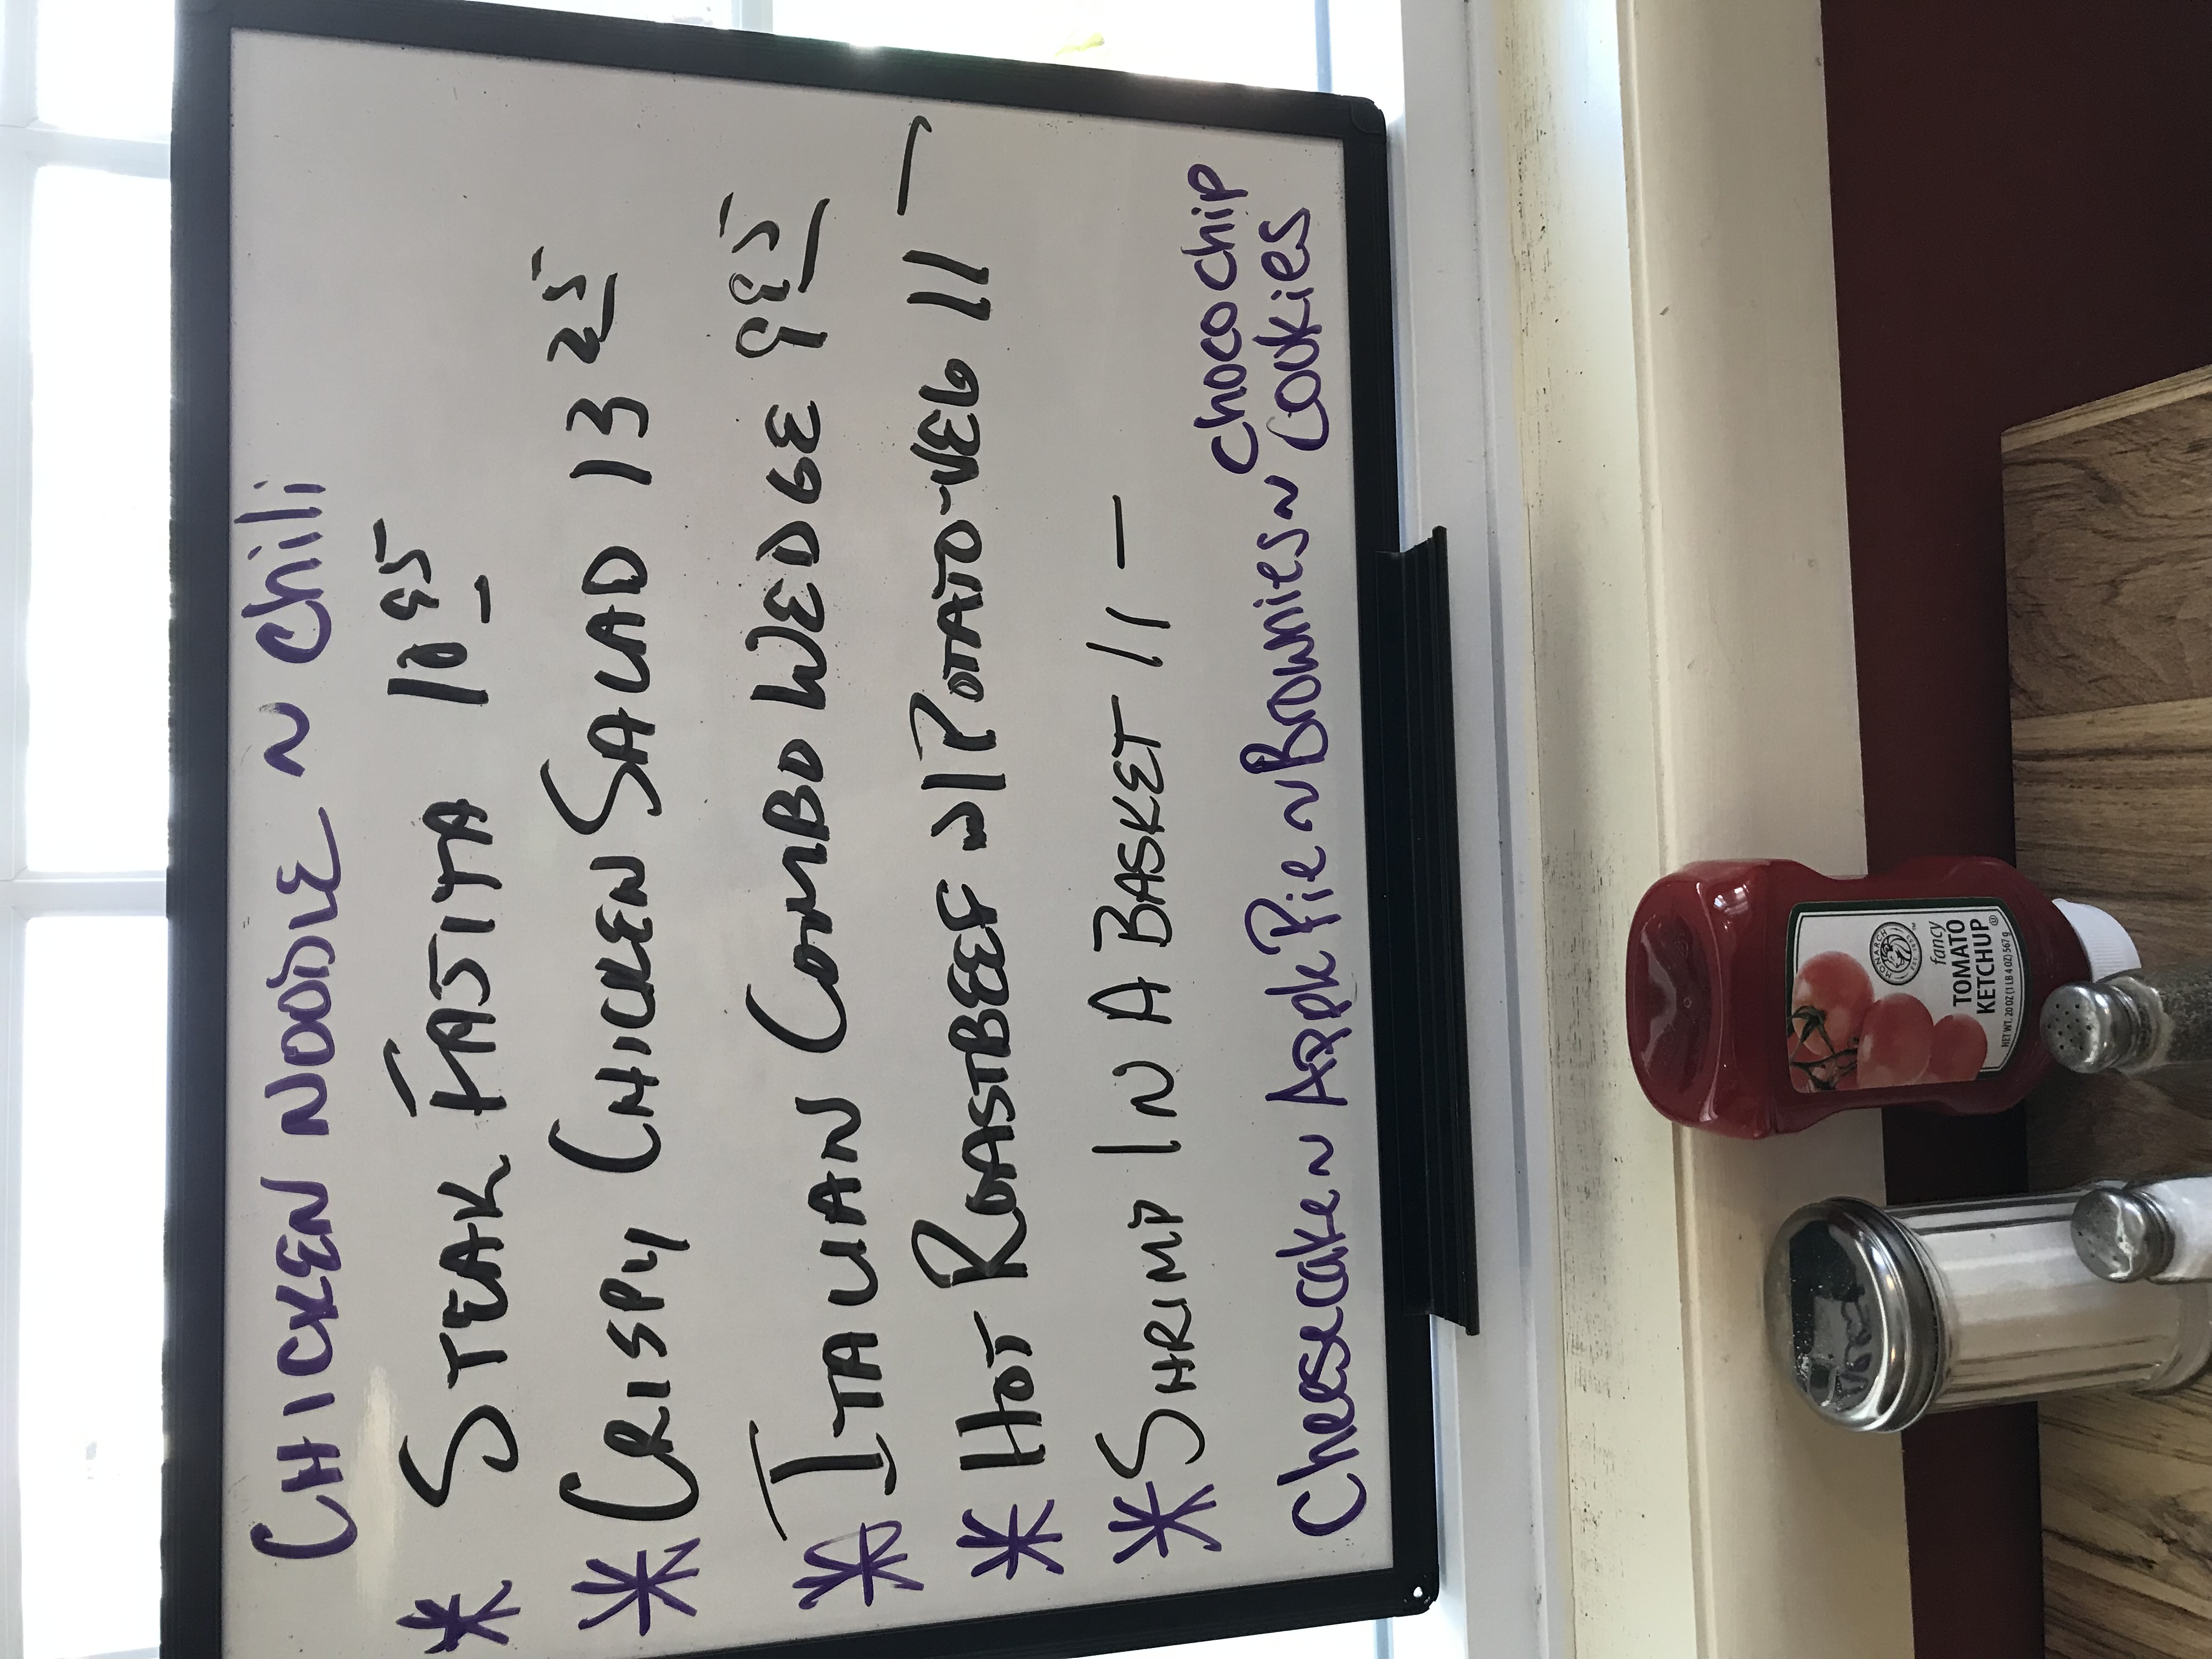 CHICKEN NOODLE ~ Chili
* STEAK FAJITA 10 95
* CRISPY CHICKEN SALAD 13 25
* ITALIAN COMBO WEDGE 9 95
* HOT ROASTBEEF w/ POTATO-VEG 11 —
* SHRIMP IN A BASKET 11 —
Cheesecake ~ Apple Pie ~ Brownies ~ Choco chip
cookies
MONARCH
fancy
TOMATO
KETCHUP
NET WT. 20 OZ (1 LB 4 OZ) 567 g